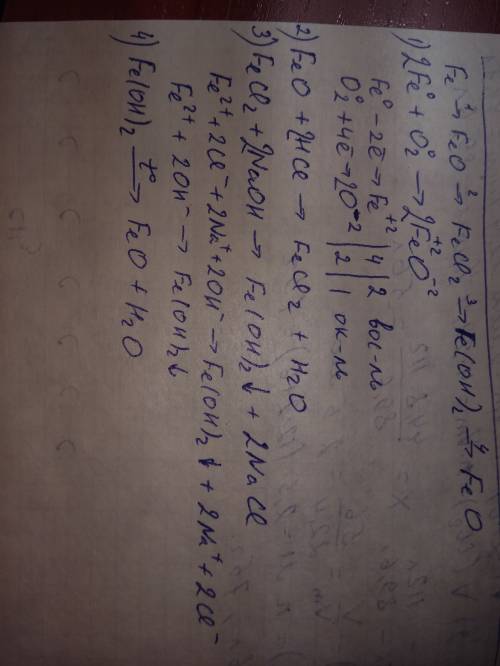 Fe →¹ FeO →² FeCl₂ →³ Fe(OH)₂ →⁴ FeO
1) 2Fe⁰ + O₂⁰ → 2Fe⁺²O⁻²
Fe⁰ - 2ē → Fe⁺² | 4 | 2 вос-ль
O₂⁰ + 4ē → 2O⁻² | 2 | 1 ок-ль
2) FeO + 2HCl → FeCl₂ + H₂O
3) FeCl₂ + 2NaOH → Fe(OH)₂↓ + 2NaCl
Fe²⁺ + 2Cl⁻ + 2Na⁺ + 2OH⁻ → Fe(OH)₂↓ + 2Na⁺ + 2Cl⁻
Fe²⁺ + 2OH⁻ → Fe(OH)₂↓
4) Fe(OH)₂ →t° FeO + H₂O